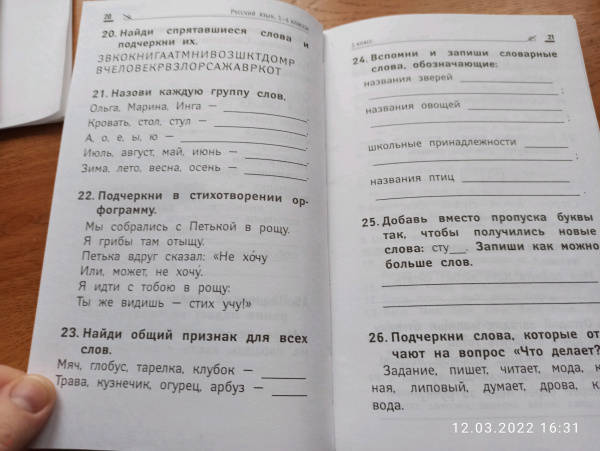 20
Русский язык. 1–4 классы
20. Найди спрятавшиеся слова и
подчеркни их.
ЗВКОКНИГААТМНИВОЗШКТДОМР
ВЧЕЛОВЕКРВЗЛОРСАЖАВРКОТ
21. Назови каждую группу слов.
Ольга, Марина, Инга —
Кровать, стол, стул —
А, о, е, ы, ю —
Июль, август, май, июнь —
Зима, лето, весна, осень —
22. Подчеркни в стихотворении ор-
фограмму.
Мы собрались с Петькой в рощу.
Я грибы там отыщу.
Петька вдруг сказал: «Не хо́чу
Или, может, не хочу́.
Я идти с тобою в рощу:
Ты же видишь — стих учу!»
23. Найди общий признак для всех
слов.
Мяч, глобус, тарелка, клубок —
Трава, кузнечик, огурец, арбуз —
1 класс
21
24. Вспомни и запиши словарные
слова, обозначающие:
названия зверей
названия овощей
школьные принадлежности
названия птиц
25. Добавь вместо пропуска буквы
так, чтобы получились новые
слова: сту__. Запиши как можно
больше слов.
26. Подчеркни слова, которые от
чают на вопрос «Что делает?
Задание, пишет, читает, мода, к
ная, липовый, думает, дрова, к
вода.
12.03.2022 16:31